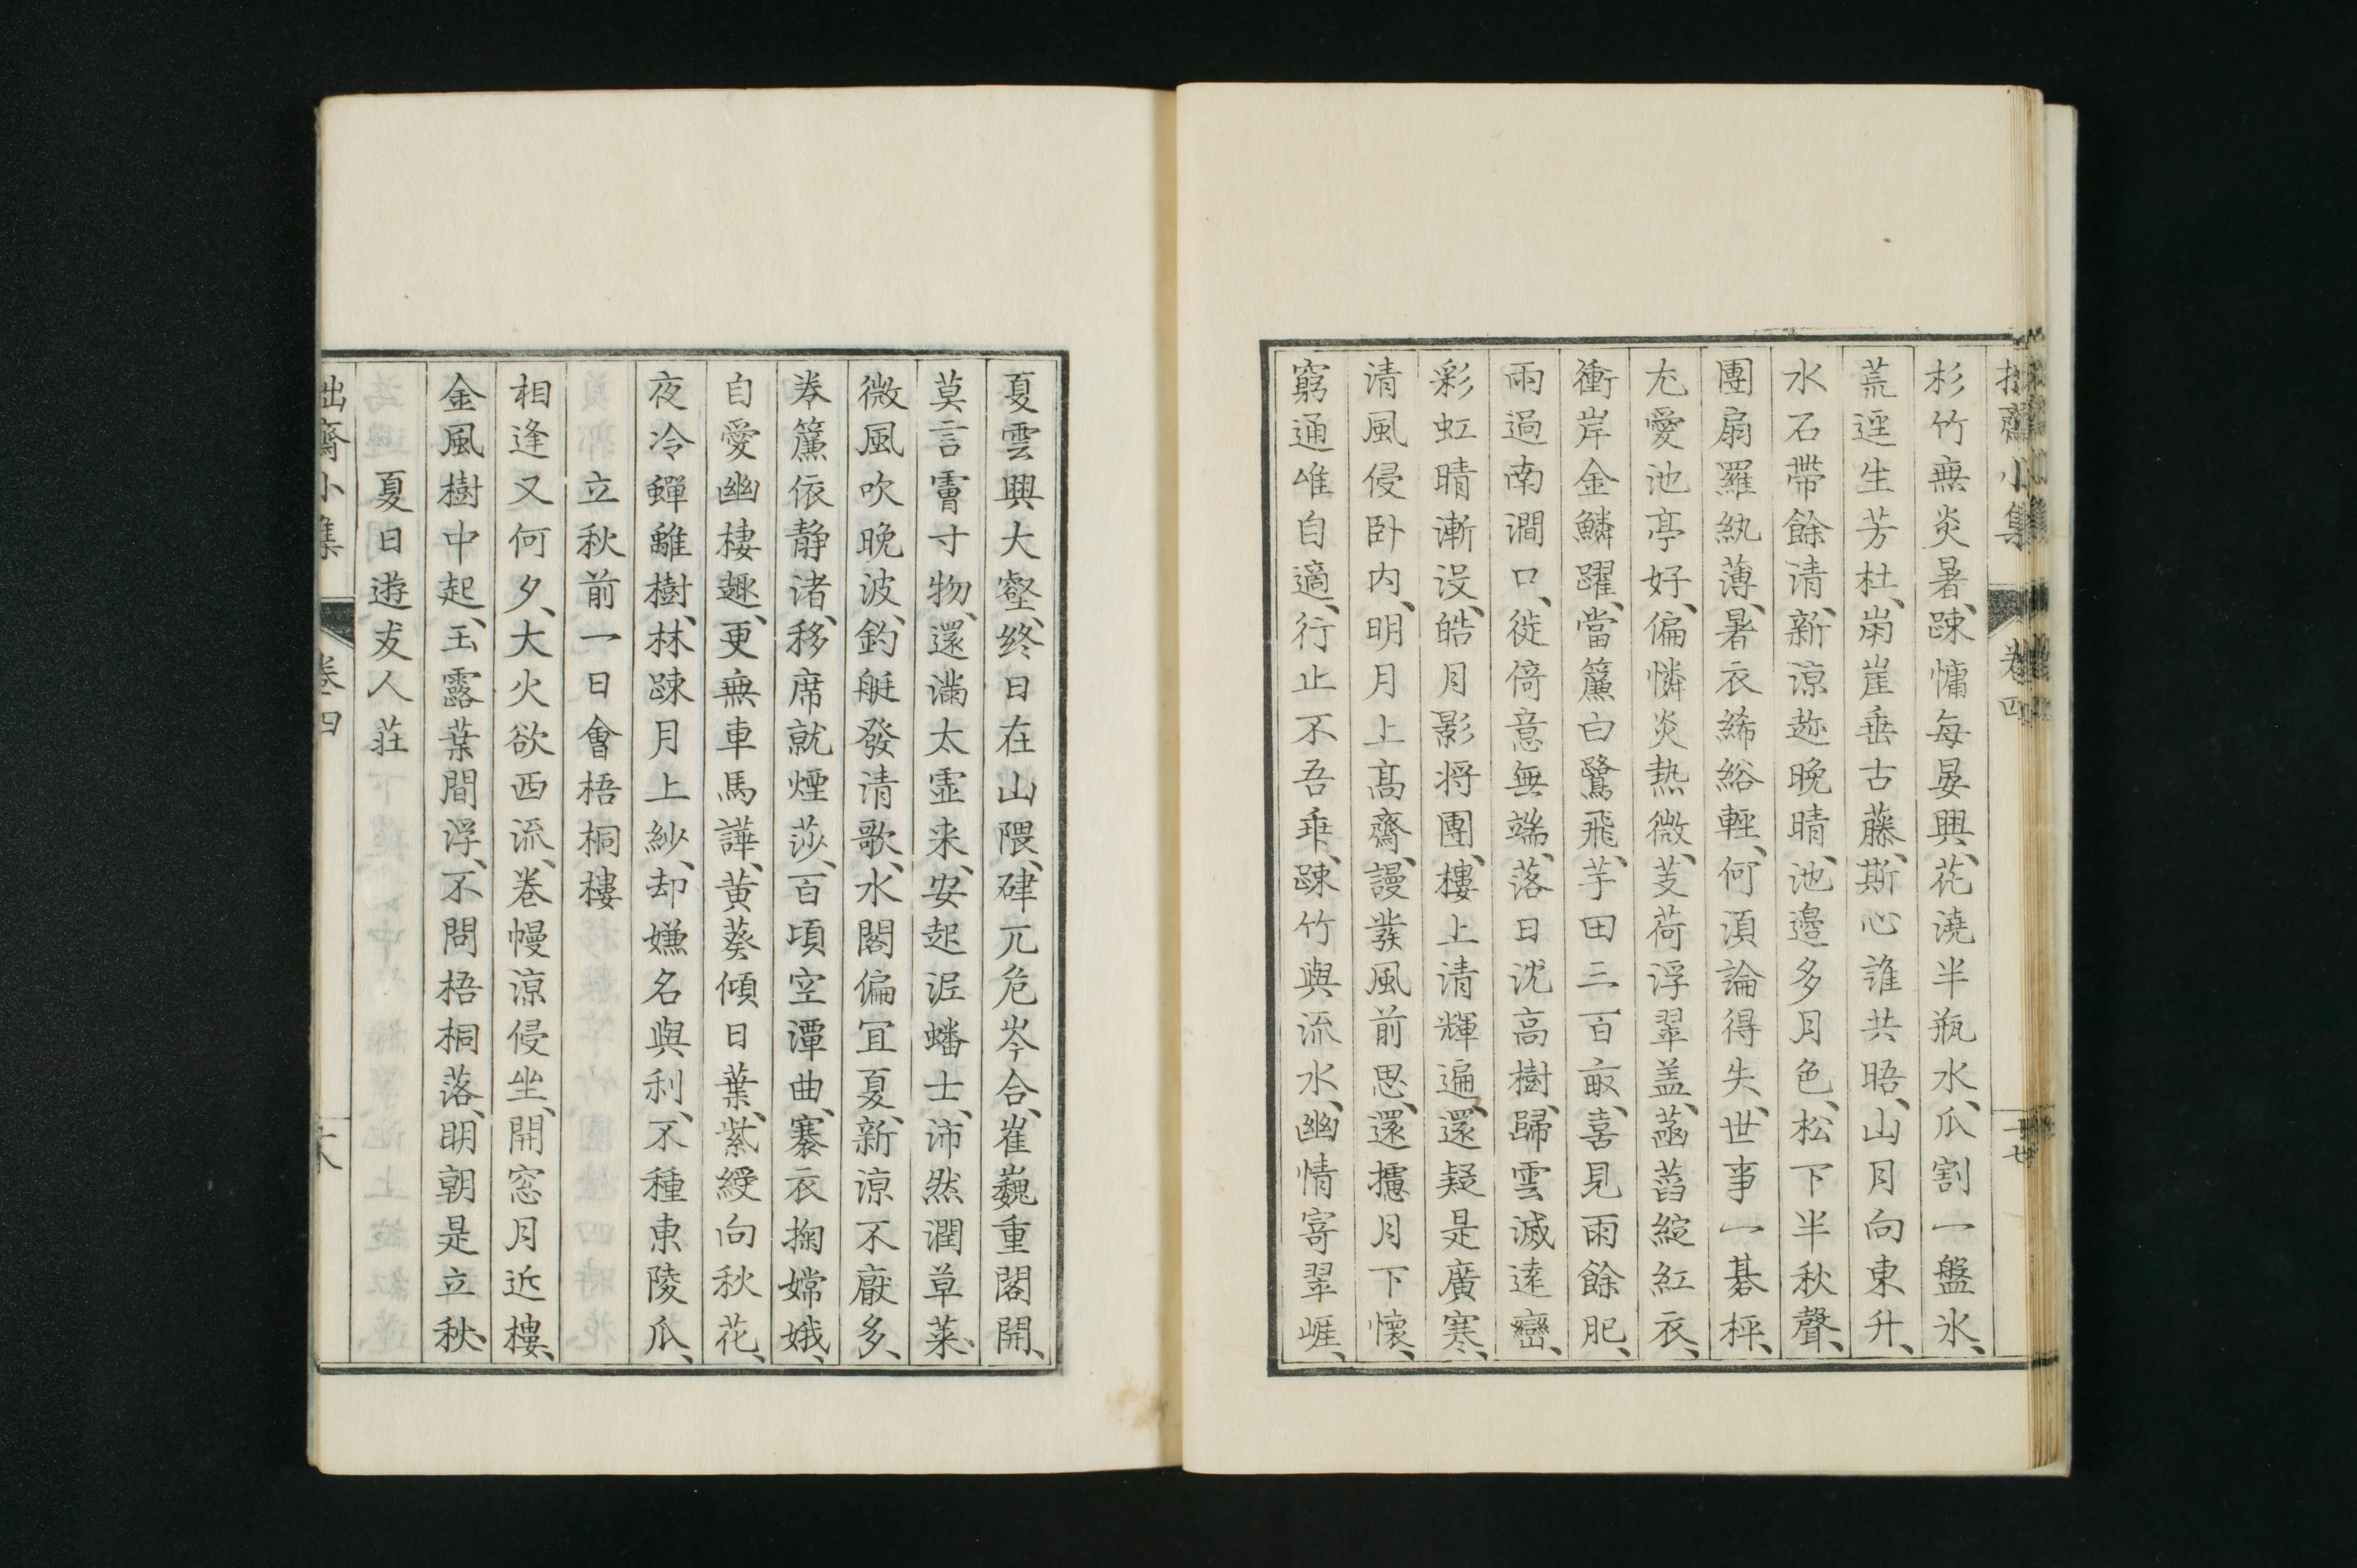 拙齋小集 卷四 十七
杉竹無炎暑、踈慵每晏興、花澆半瓶水、瓜割一盤氷、
荒逕生芳杜、崩崖垂古藤、斯心誰共晤、山月向東升、
水石帶餘清、新涼趂晚晴、池邉多月色、松下半秋聲、
團扇羅紈薄、暑衣絺綌輕、何湏論得失、世事一棊枰、
尢愛池亭好、偏憐炎热微、芰荷浮翠盖、菡萏綻紅衣、
衝岸金鱗躍、當簾白鷺飛、芋田三百畝、喜見雨餘肥、
雨過南澗口、徙倚意無端、落日沈高樹、歸雲滅遠巒、
彩虹晴漸没、皓月影将團、樓上清輝遍、還疑是廣寒、
清風侵卧内、明月上髙齋、謾發風前思、還攄月下懷、
窮通唯自適、行止不吾乖、踈竹與流水、幽情寄翠崕、
夏雲興大壑、终日在山隈、硉兀危岑合、崔巍重閣開、
莫言雷寸物、還滿太虛来、安起泥蟠士、沛然潤草萊、
微風吹晚波、釣艇發清歌、水閣偏宜夏、新涼不厭多、
券簾依静渚、移席就煙莎、百頃空潭曲、褰衣掬嫦娥、
自愛幽棲趣、更無車馬譁、黄葵傾日葉、紫綬向秋花、
夜冷蟬離樹、林踈月上紗、却嫌名與利、不種東陵瓜、
立秋前一日會梧桐樓
相逢又何夕、大火欲西流、卷幔涼侵坐、開窓月近樓、
金風樹中起、玉露葉間浮、不問梧桐落、明朝是立秋、
夏日遊友人莊
拙齋小集 卷四